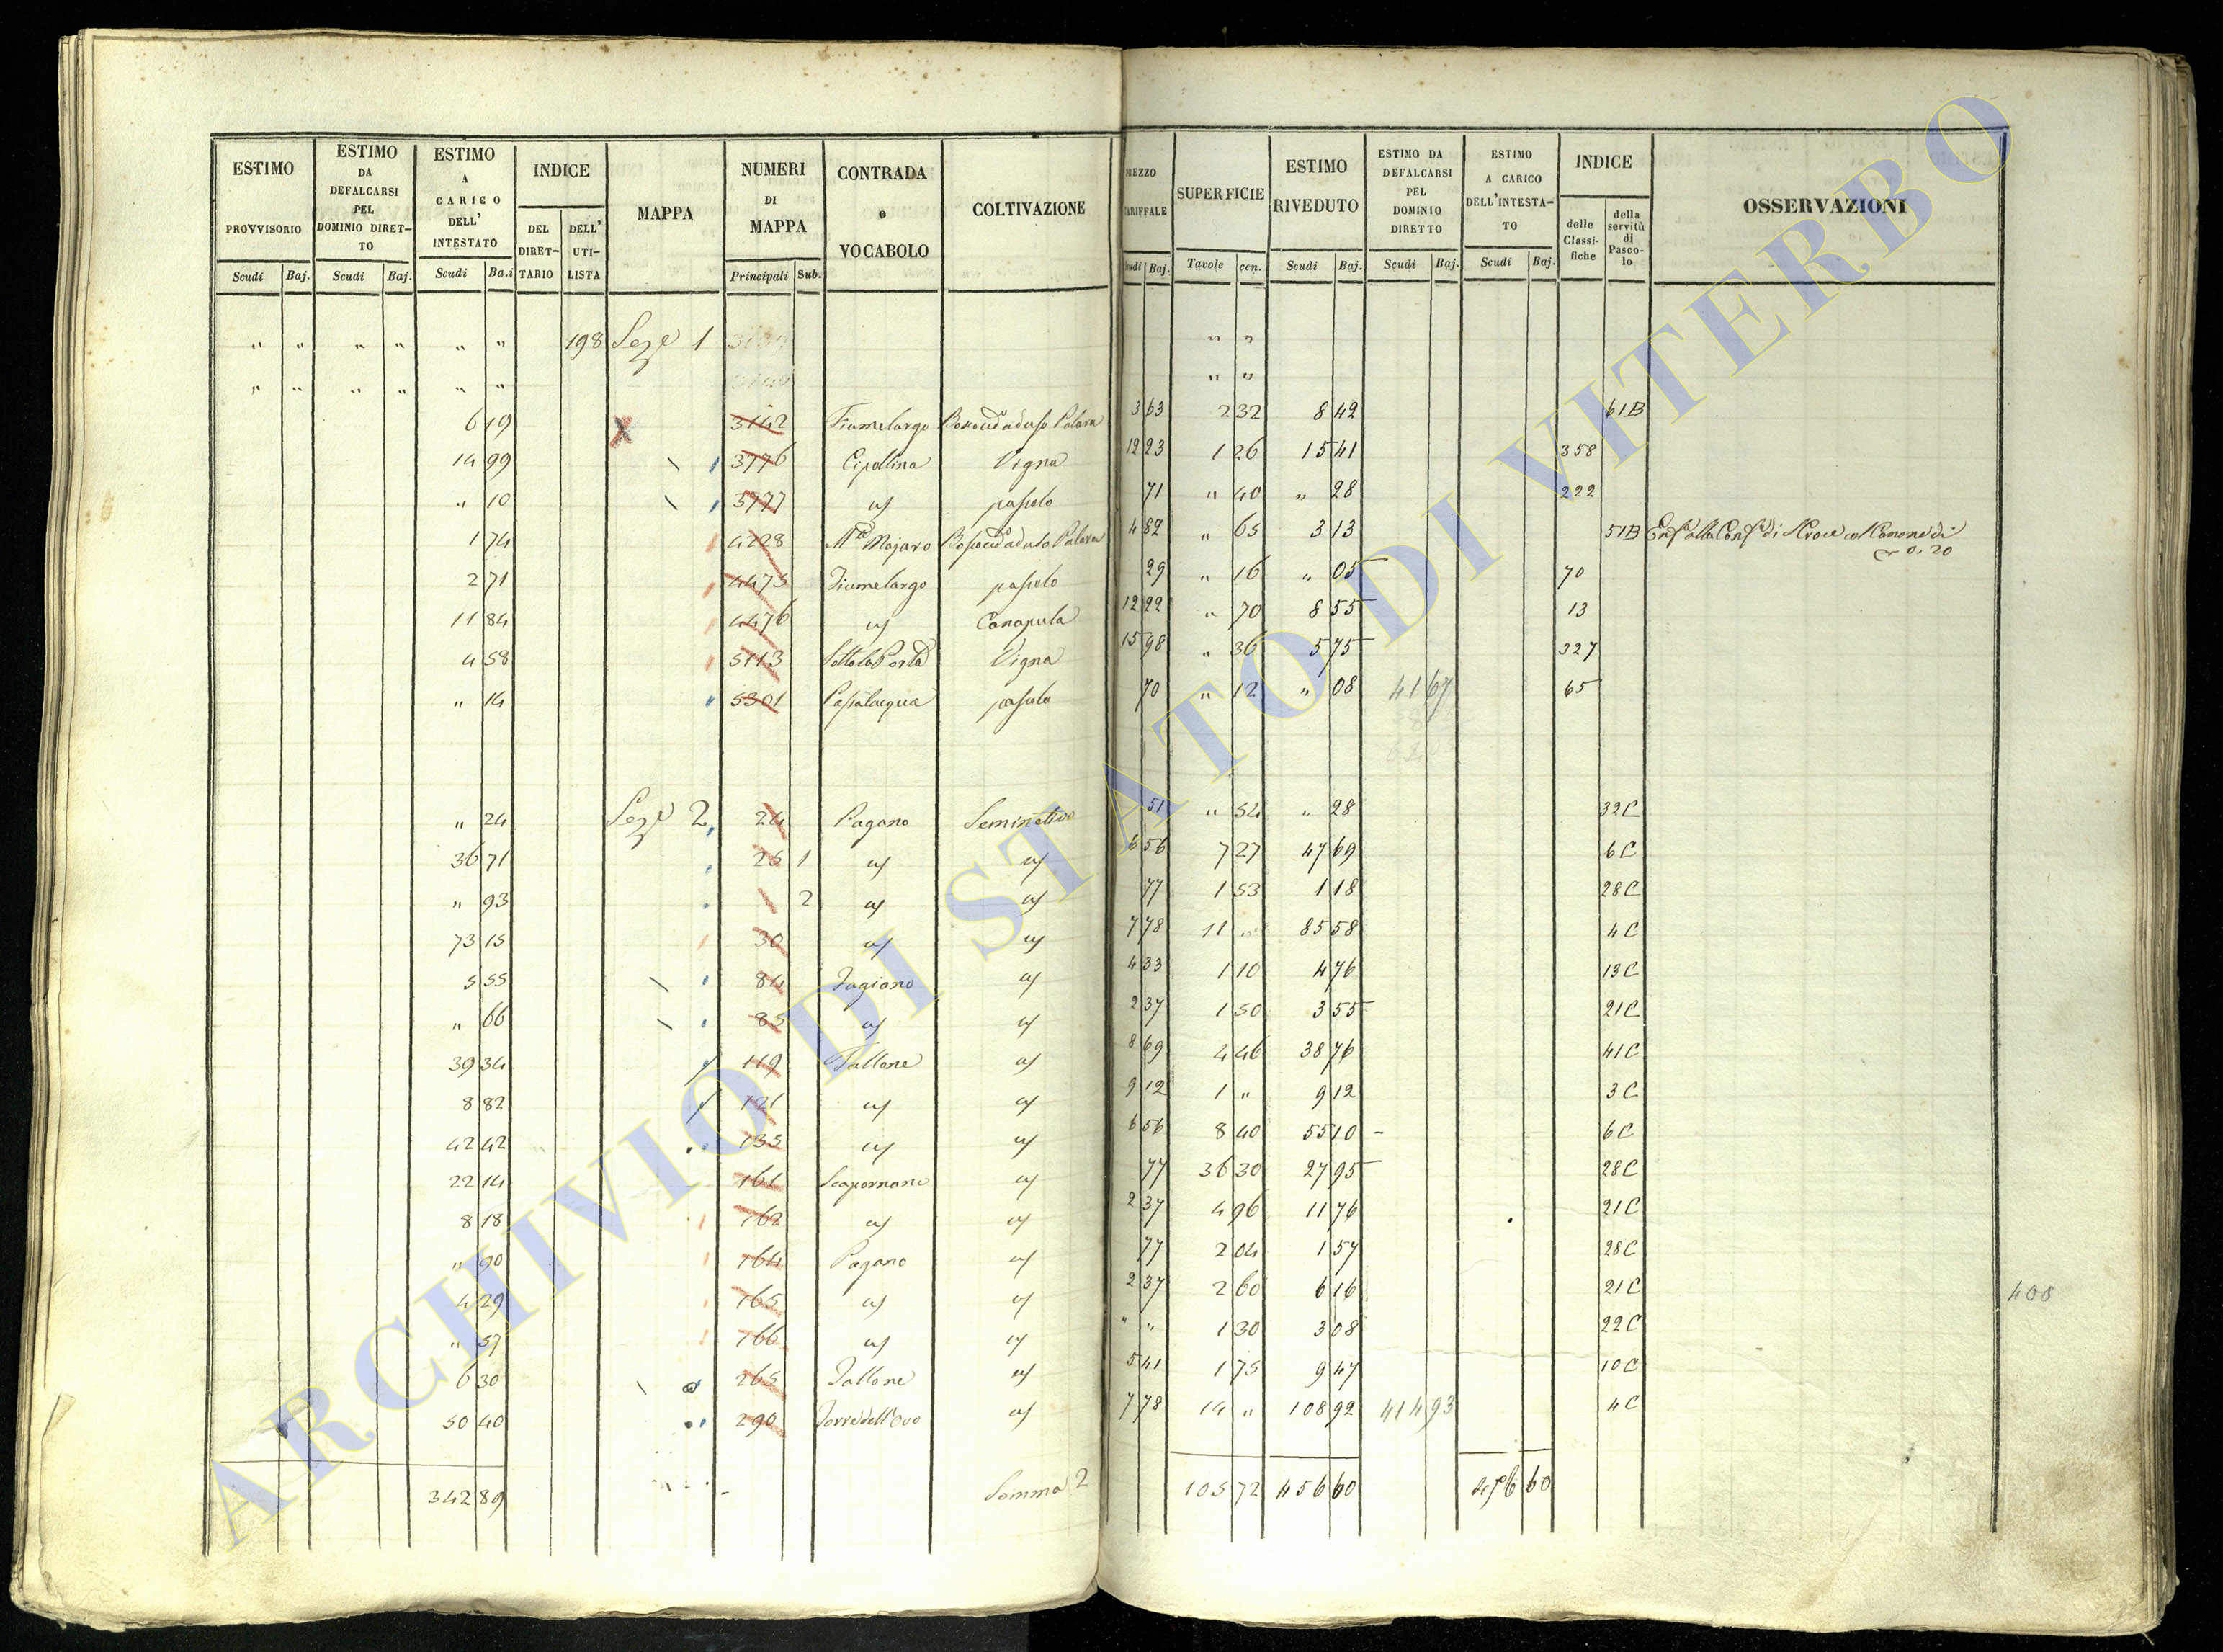 ESTIMO PROVVISORIO Scudi Baj.
ESTIMO DA DEFALCARSI PEL DOMINIO DIRET-TO Scudi Baj.
ESTIMO A CARICO DELL' INTESTATO Scudi Ba.i
INDICE DEL DIRET-TARIO DELL' UTI-LISTA
MAPPA
NUMERI DI MAPPA Principali Sub.
CONTRADA o VOCABOLO
COLTIVAZIONE
MEZZO TARIFFALE Scudi Baj.
SUPERFICIE Tavole cen.
ESTIMO RIVEDUTO Scudi Baj.
ESTIMO DA DEFALCARSI PEL DOMINIO DIRETTO Scudi Baj.
ESTIMO A CARICO DELL'INTESTA-TO Scudi Baj.
INDICE delle Classi-fiche della servitù di Pasco-lo
OSSERVAZIONI
" " " " " " 198 Sez.e 1 " "
" " " " " " " "
6 19 X 3142 Fiumelargo 3 63 2 32 8 42 61B
14 99 3776 Cipollina Vigna 12 23 1 26 15 41 358
" 10 3777 " pascolo 71 " 40 " 28 222
1 74 4228 M.te Majaro 4 82 " 65 3 13 51B
0. 20
2 71 4475 Fiumelargo pascolo 29 " 16 " 05 70
11 84 4476 " Canapula 12 22 " 70 8 55 13
4 58 5113 Sotto la Porta Vigna 15 98 " 36 5 75 327
" 14 5301 Passalacqua pascolo 70 " 12 " 08 41 67 65
" 24 Sez.e 2 24 Pagano Seminativo 51 " 54 " 28 32C
36 71 25 1 " " 6 56 7 27 47 69 6C
" 93 2 " " 77 1 53 1 18 28C
73 15 30 " " 7 78 11 " 85 58 4C
5 55 84 Fagiano " 4 33 1 10 4 76 13C
" 66 85 " " 2 37 1 50 3 55 21C
39 34 119 Tallone " 8 69 4 46 38 76 41C
8 82 121 " " 9 12 1 " 9 12 3C
42 42 135 " " 6 56 8 40 55 10 6C
22 14 161 Scapornano " 77 36 30 27 95 28C
8 18 162 " " 2 37 4 96 11 76 21C
" 90 164 Pagano " 77 2 04 1 57 28C
4 29 165 " " 2 37 2 60 6 16 21C
" 57 166 " " " " 1 30 3 08 22C
6 30 265 Tallone " 5 41 1 75 9 47 10C
50 40 290 Torre dell'Ovo " 7 78 14 " 108 92 414 93 4C
342 89 Somma 2 105 72 456 60 456 60
408
ARCHIVIO DI STATO DI VITERBO